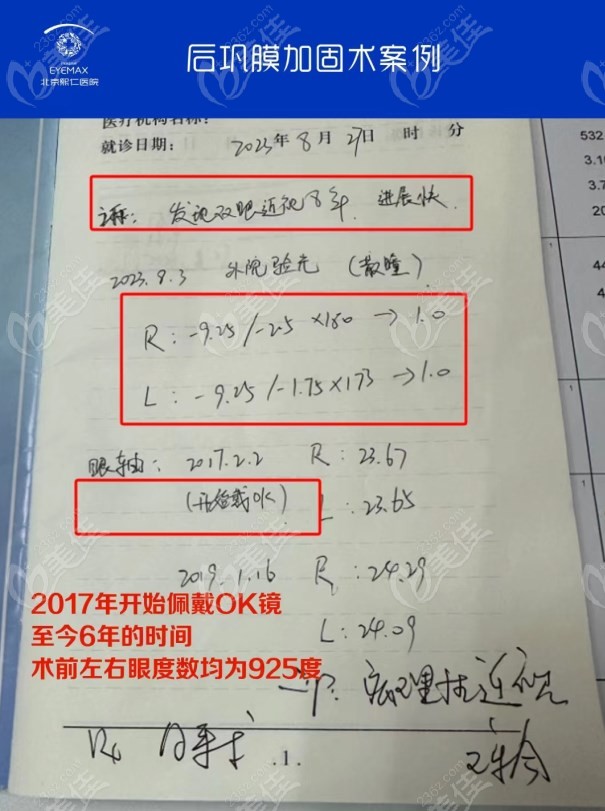 EYEMAX
北京熙仁医院
后巩膜加固术案例
医疗机构名称：
就诊日期： 2023年 8月 27日 时 分
主诉： 发现双眼近视8年 进展快.
2023.8.3 外院验光 (散瞳)
R : -9.25 /-2.5 ×180 → 1.0
L : -9.25 /-1.75 ×173 → 1.0
眼轴: 2017.2.2 R : 23.67
(开始戴OK) L : 23.65
2019.1.16 R : 24.29
L : 24.09
2017年开始佩戴OK镜
至今6年的时间
术前左右眼度数均为925度
病理性近视
.1.
532
3.10
3.7
20
44